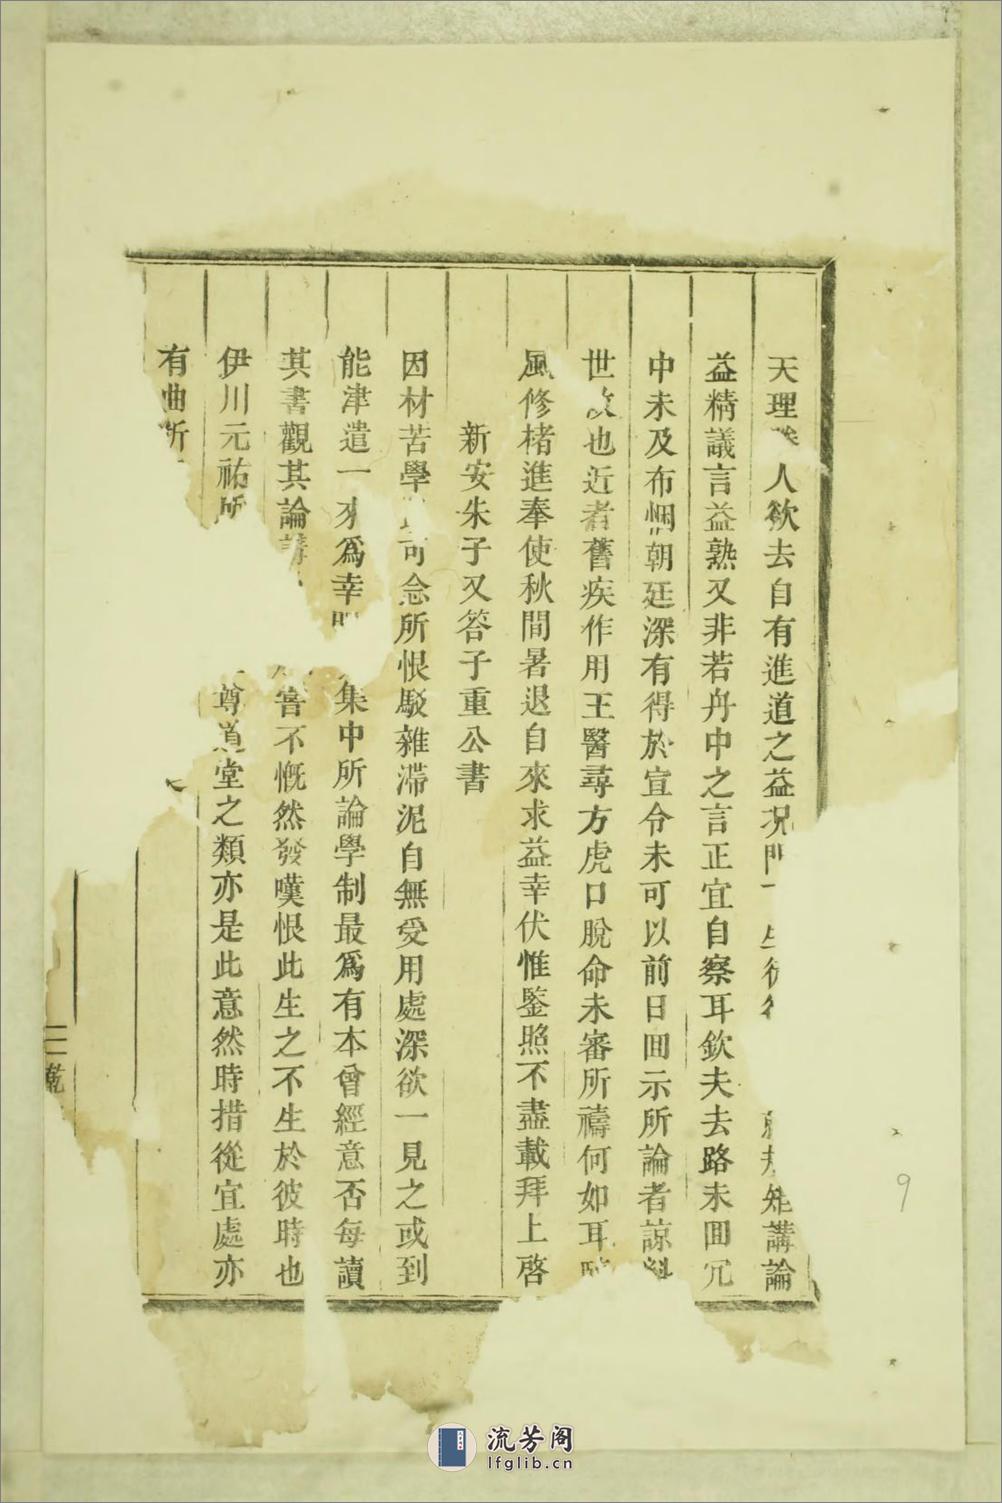 天理人欲去自有進道之益況講論
益精議言益熟又非若冊中之言正宜自察耳欽夫去路未囬冗
中未及布悃朝廷深有得於宣令未可以前日囬示所論者諒
世故也近者舊疾作用王醫尋方虎口脫命未審所禱何如耳
風修楮進奉使秋間暑退自來求益幸伏惟鑒照不盡載拜上啓
新安朱子又答子重公書
因材苦學可念所恨駁雜滯泥自無受用處深欲一見之或到
能津遣一來爲幸集中所論學制最爲有本曾經意否每讀
其書觀其論講不慨然發嘆恨此生之不生於彼時也
伊川元祐所尊道堂之類亦是此意然時措從宜處亦
有曲折
乾
9
流芳阁
lfglib.cn